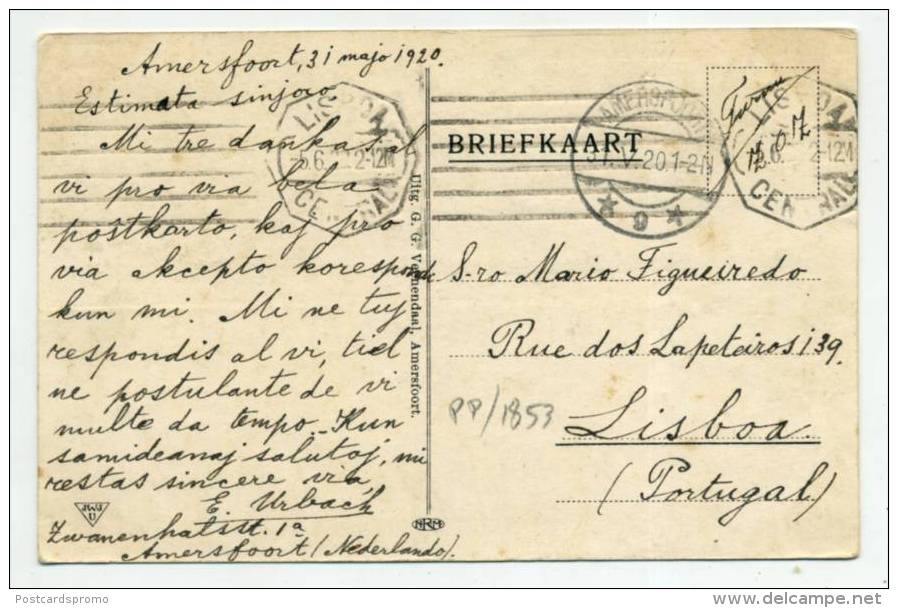 Amersfoort, 31 majo 1920.
Estimata sinjoro
Mi tre dankas al
vi pro via bela
postkarto, kaj pro
via akcepto korespondi
kun mi. Mi ne tuj
respondis al vi, tiel
ne postulante de vi
multe da tempo. Kun
samideanaj salutoj, mi
restas sincere via
E. Urbach
Amersfoort (Nederlando).
JWG
U
Uitg. G. G. Veenendaal, Amersfoort.
NRM
BRIEFKAART
AMERSFOORT
31.V.20.1-2N
9
LISBOA
CENTRAL
-5.6. 2-12M
LISBOA
CENTRAL
2-12M
S-ro Mario Figueiredo
Rue dos Lapeteiros 139.
Lisboa.
(Portugal)
PP/1853
Postcardspromo